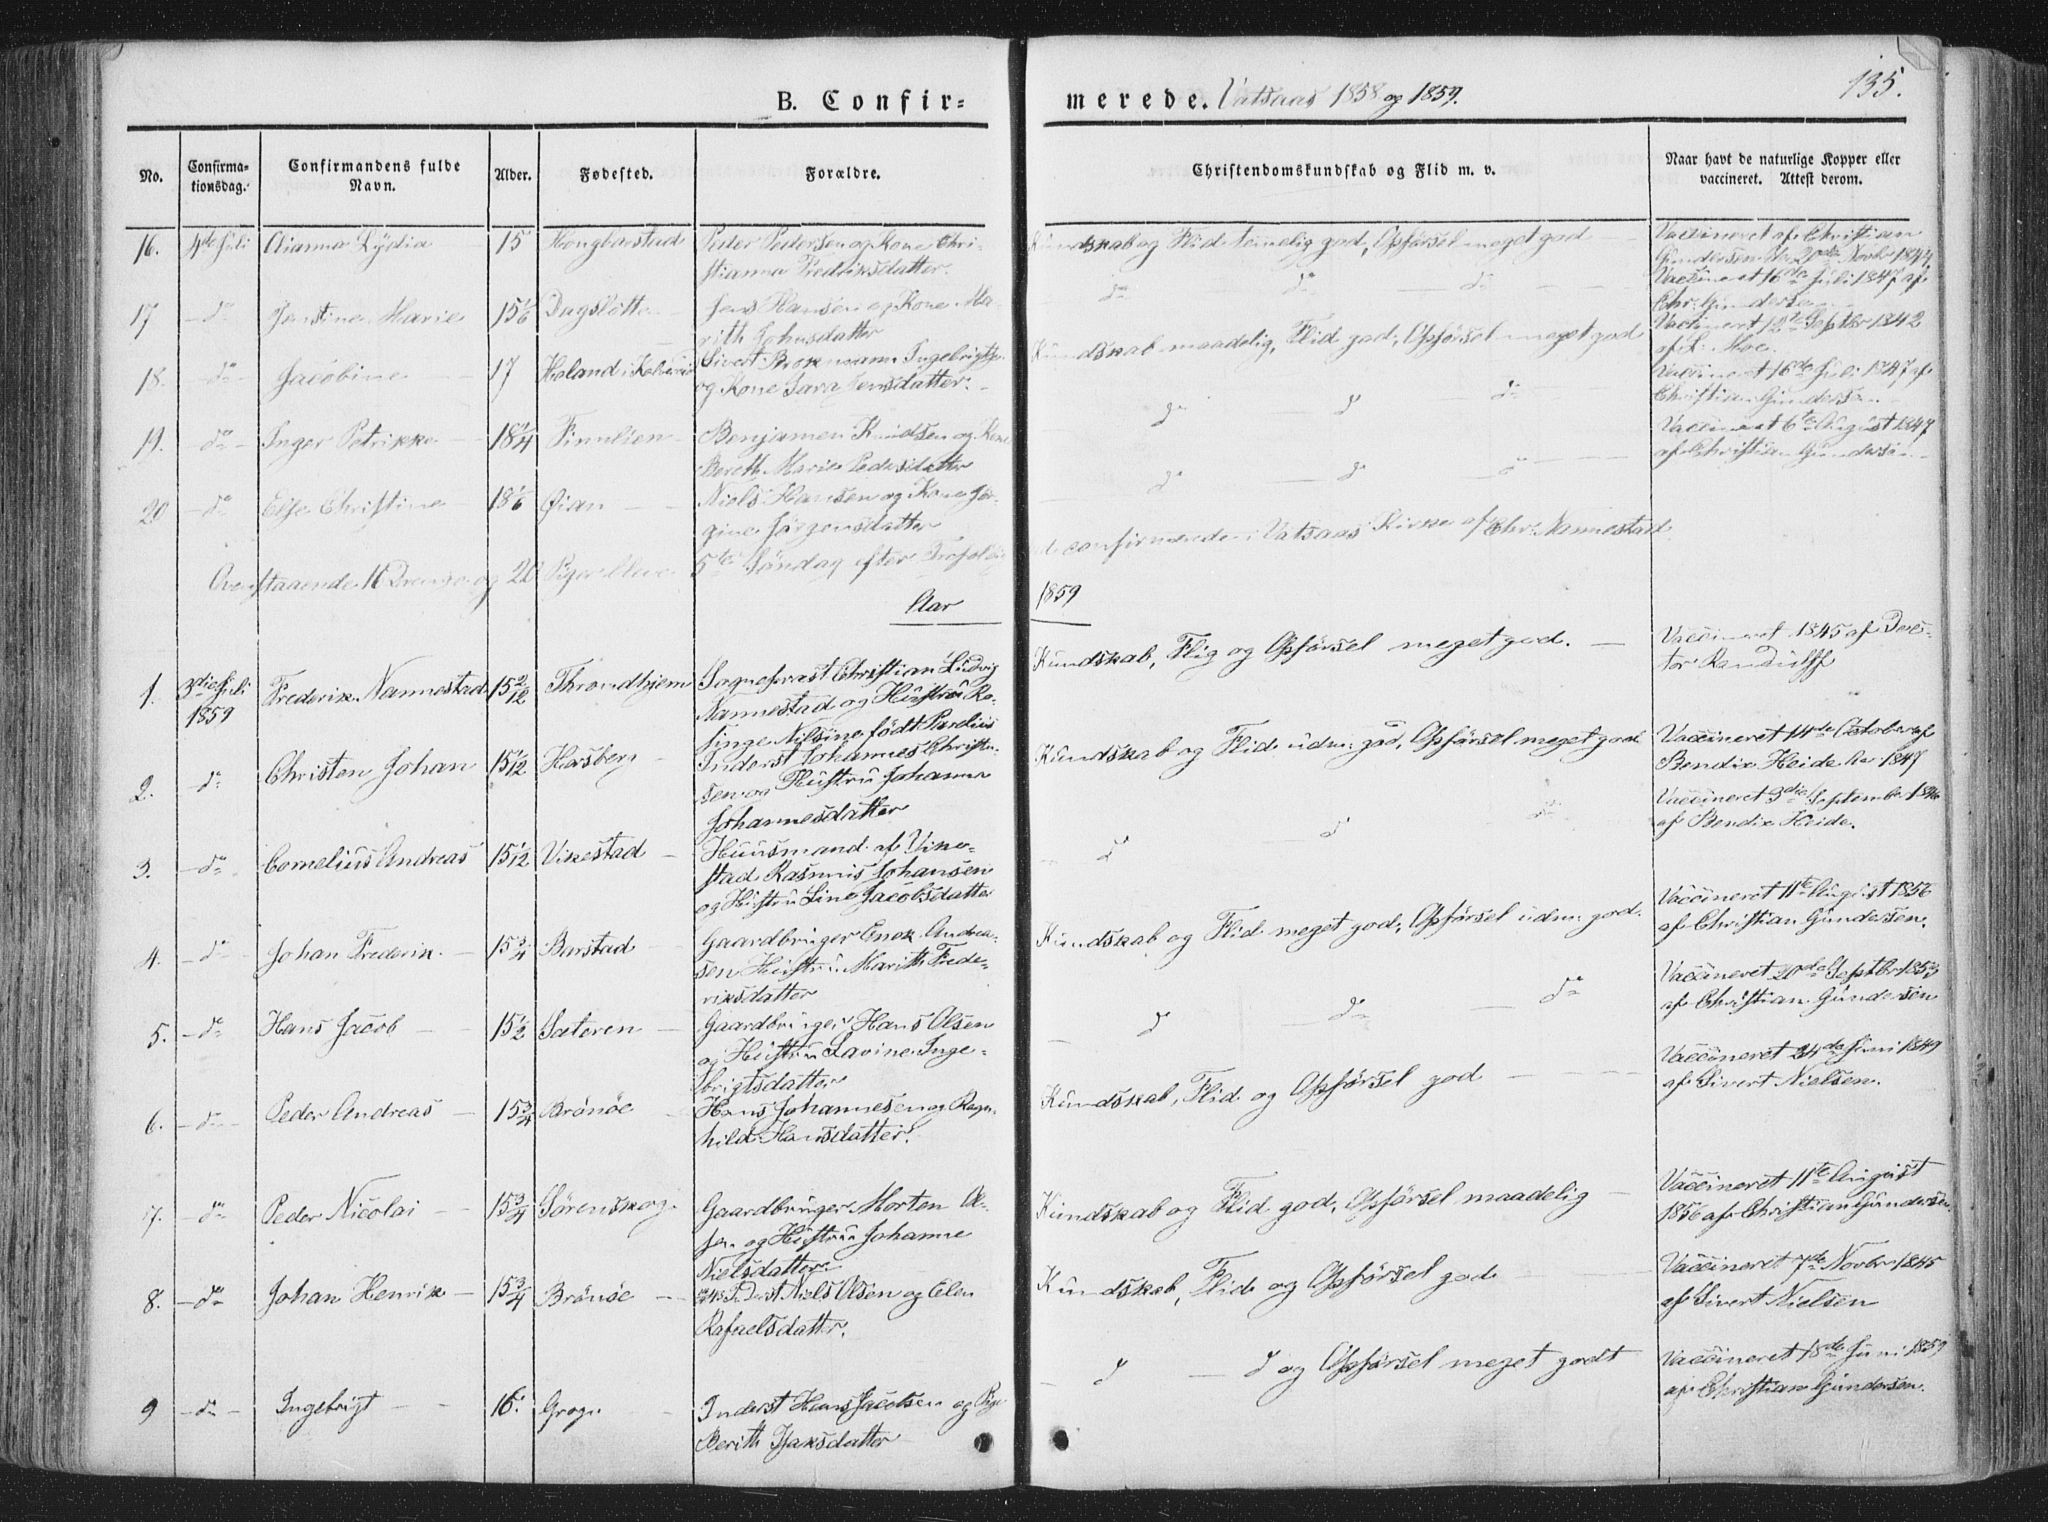 B. Confir-
merede. Vatsaas 1858 og 1859.
135.
No.
Confirma-
tionsdag.
Confirmandens fulde
Navn.
Alder.
Fødested.
Forældre.
Christendomskundskab og Flid m. v.
Naar havt de naturlige Kopper eller
vaccineret. Attest derom.
16. 4de Juli Lydia 15 Peder Pedersen og Kone Chri-
stianna Fredriksdatter.
Kundskab og Flid temmelig god, Opførsel meget god
Vaccineret af Christian
Gundersen 20de Novbr 1844
17 do Marie 15 1/6 Dagslotte Jens Hansen og Kone Ma-
rith Johnsdatter
do do do
Vaccineret 16de Juli 1847 af
Chr. Gundersen
18. do Jacobine 17 Høland i Sivert Ingebrigts.
og Kone Sara Jensdatter.
Kundskab maadelig, Flid god, Opførsel meget god
Vaccineret 12te Septbr 1842
af L. Moe.
19. do Inger Petrikke 18 1/4 Finnlien Benjamen Knudsen og Kone
Bereth Marie Pedersdatter
do do do
Vaccineret 16de Juli 1847 af
Christian Gundersen
20 do Else Christine 18 1/6 Øian Niels Hansen og Kone Jør-
gine Jørgensdatter
do do do
Vaccineret 6te August 1847
af Christian Gundersen
Ovenstaaende 16 Drenge og 20 Piger bleve 5te Søndag efter
confirmerede i Vatsaas Kirke af Chr. Nannestad
Aar 1859
1. 3die Juli
1859
Frederik Nannestad 15 2/12 Throndhjem Sogneprast Christian Ludvig
Nannestad og Hustru Re-
Nilsine født Parelius
Kundskab, Flig og Opførsel meget god.
Vaccineret 1845 af Doc-
tor Randulff
2. do Christen Johan 15 1/12 Horsberg Inderst Johannes Christen-
sen og Hustru Johanna
Johannesdatter
Kundskab og Flid udm: god, Opførsel meget god
Vaccineret 14de October af
Bendix Heide 1847
3. do Cornelius Andreas 15 1/12 Vikestad Huusmand af Vike-
stad Rasmus Johansen
og Hustru Line Jacobsdatter
do do do
Vaccineret 3die September 1846
af Bendix Heide.
4. do Johan Frederik 15 3/4 Barstad Gaardbruger Enok Andrea-
sen Hustru Marith Frede-
riksdatter
Kundskab og Flid meget god, Opførsel udm: god.
Vaccineret 11te August 1856
af Christian Gundersen.
5. do Hans Jacob 15 1/2 Sæteren Gaardbruger Hans Olsen
og Hustru Lavine Inge-
brigtsdatter
do do do
Vaccineret 20de Septbr 1853
af Christian Gundersen
6. do Peder Andreas 15 3/4 Brønøe Hans Johannesen og Ragn-
hild Hansdatter.
Kundskab, Flid og Opførsel god
Vaccineret 24de Juni 1849
af Sivert Nielsen.
7. do Peder Nicolai 15 3/4 Sørenskog Gaardbruger Morten Ol-
sen og Hustru Johanne
Nielsdatter
Kundskab og Flid god, Opførsel maadelig
Vaccineret 11te August
1856 af Christian Gundersen.
8. do Johan Henrik 15 3/4 Brønøe Inderst Niels Olsen og Elen
Rafaelsdatter.
Kundskab, Flid og Opførsel god
Vaccineret 7de Novbr 1845
af Sivert Nielsen
9 do Ingebrigt 16 Inderst Hans Jacobsen og Pige
Berith Isaksdatter
do do og Opførsel meget godt
Vaccineret 18de Juni 1859
af Christian Gundersen.